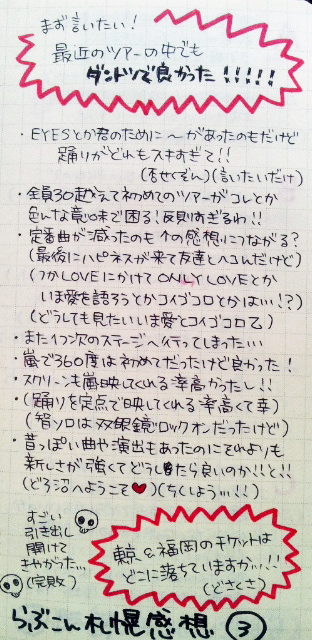 まず言いたい!
最近のツアーの中でも
ダントツで良かった!!!!!
・EYESとか君のために〜があったのもだけど
踊りがどれもスキすぎて!!
(言いたいだけ)
・全員30越えて初めてのツアーがコレとか
色んな意味で困る!反則すぎるわ!!
・定番曲が減ったのも↑の感想につながる?
(最後にハピネスが来て友達とハコんだけど)
(つかLOVEにかけてONLY LOVEとか
いま愛を語ろうとかコイゴコロとかは…!?)
(どうしても見たいいま愛とコイゴコロ乙)
・また1つ次のステージへ行ってしまったい
・嵐で360度は初めてだったけど良かった!
・スクリーンも嵐映してくれる率高かったし!!
・(踊りを定点で映してくれる率高くて幸)
(智ソロは双眼鏡ロックオンだったけど)
・昔っぽい曲や演出もあったのにそれよりも
新しさが強くてどうしたら良いのか!!と!!
(どろ沼へようこそ♥)(ちくしょう…!!)
すごい
引き出し
開けて
きやがった…
(完敗)
東京&福岡のチケットは
どこに落ちていますか…!!
(どさくさ)
らぶこん札幌感想 ③